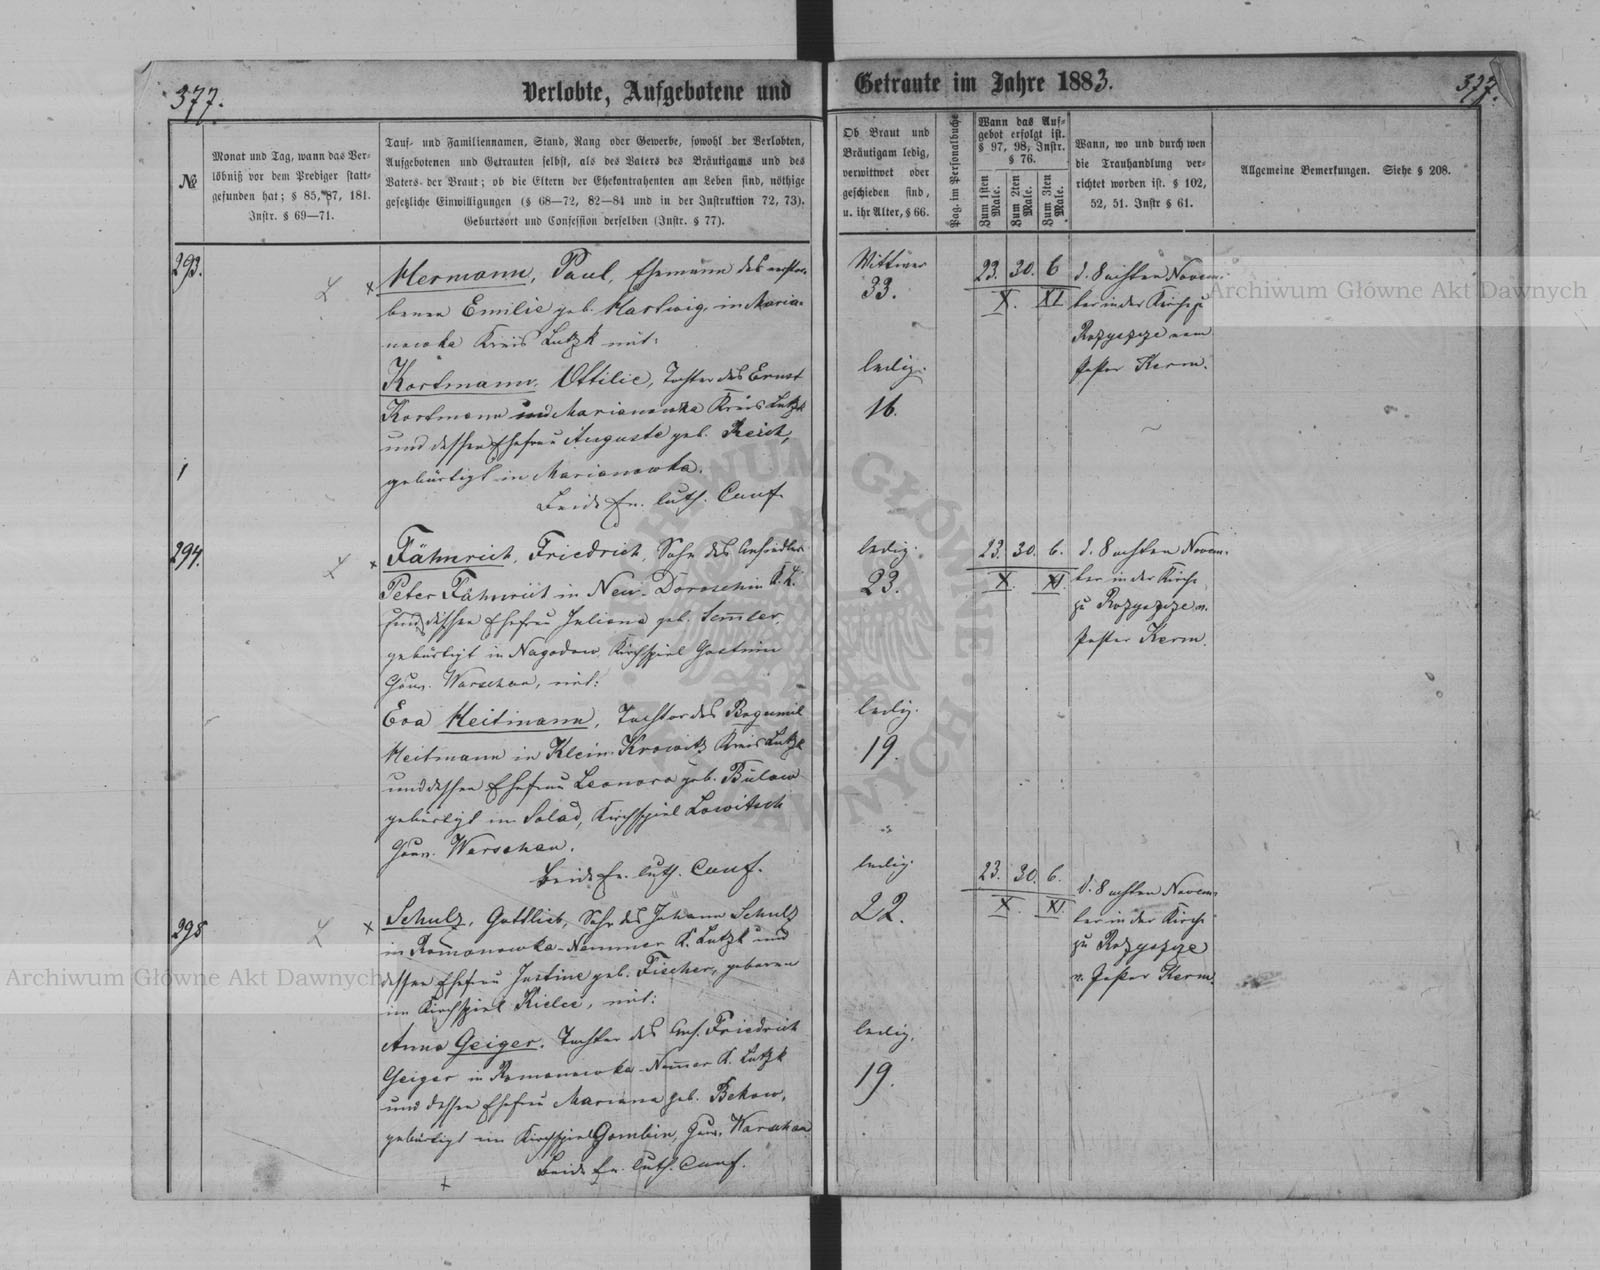 377.
Verlobte, Aufgebotene und
Getraute im Jahre 1883.
377.
№
Monat und Tag, wann das Ver-
löbniß vor dem Prediger statt-
gefunden hat; § 85, 87, 181.
Instr. § 69—71.
Tauf- und Familiennamen, Stand, Rang oder Gewerbe, sowohl der Verlobten,
Aufgebotenen und Getrauten selbst, als des Vaters des Bräutigams und des
Vaters der Braut; ob die Eltern der Ehekontrahenten am Leben sind, nöthige
gesetzliche Einwilligungen (§ 68—72, 82—84 und in der Instruktion 72, 73).
Geburtsort und Confession derselben (Instr. § 77).
Ob Braut und
Bräutigam ledig,
verwittwet oder
geschieden sind,
u. ihr Alter, § 66.
Pag. im Personalbuche
Wann das Auf-
gebot erfolgt ist.
§ 97, 98, Instr.
§ 76.
Zum 1sten Male.
Zum 2ten Male.
Zum 3ten Male.
Wann, wo und durch wen
die Trauhandlung ver-
richtet worden ist. § 102,
52, 51. Instr § 61.
Allgemeine Bemerkungen. Siehe § 208.
293.
Hermann, Paul, Ehemann des verstor-
benen Emilie geb. Hartwig, in Maria-
nowka Kreis Lutzk mit:
Kortmann, Ottilie, Tochter des Ernst
Kortmann in Marianowka Kreis Lutzk
und dessen Ehefrau Auguste geb. Reich,
gebürtigt in Marianowka.
Beide Ev. luth. Conf.
Wittwer
33.
ledig.
16.
23. 30. 6
X. XI
d. 8 achten Novem-
ber in der Kirche zu
Rozyszcze vom
Pastor Kerm.
294.
Fähnrich, Friedrich, Sohn des Ansiedler
Peter Fähnrich in Neu-Dorossin K. L.
und dessen Ehefrau Juliana geb. Semler,
gebürtigt in Nagodow, Kirchspiel Gostinin
Gouv. Warschau, mit:
Eva Heitmann, Tochter des Bogumil
Heitmann in Klein-Krowitz Kreis Lutzk
und dessen Ehefrau Leonora geb. Bülow
gebürtigt in Solad, Kirchspiel Lowitsch
Gouv. Warschau.
Beide Ev. luth. Conf.
ledig.
23.
ledig.
19.
23. 30. 6.
X. XI.
d. 8 achten Novem-
ber in der Kirche
zu Rozyszcze v.
Pastor Kerm.
295
Schulz, Gottlieb, Sohn des Johann Schulz
in Romanowka-Nemmer K. Lutzk und
dessen Ehefrau Justine geb. Fischer, geboren
im Kirchspiel Kielce, mit:
Anna Geiger, Tochter des Ans. Friedrich
Geiger in Romanowka Nemmer K. Lutzk
und dessen Ehefrau Mariana geb. Bekow,
gebürtigt im Kirchspiel Gombin, Gouv. Warschau
Beide Ev. luth. Conf.
ledig.
22.
ledig.
19.
23. 30. 6.
X. XI.
d. 8 achten Novem-
ber in der Kirche
zu Rozyszcze
v. Pastor Kerm.
Archiwum Główne Akt Dawnych
Archiwum Główne Akt Dawnych
ARCHIWUM GŁÓWNE AKT DAWNYCH